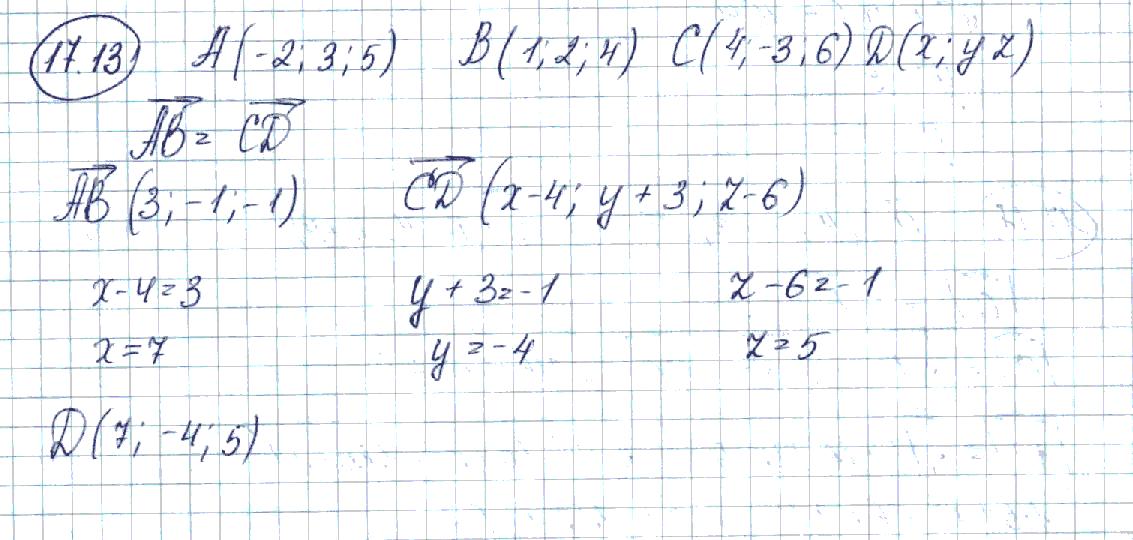 17.13 A(-2; 3; 5) B(1; 2; 4) C(4; -3; 6) D(x; y z)
AB = CD
AB (3; -1; -1) CD (x-4; y+3; z-6)
x-4=3 y+3=-1 z-6=-1
x=7 y=-4 z=5
D(7; -4; 5)